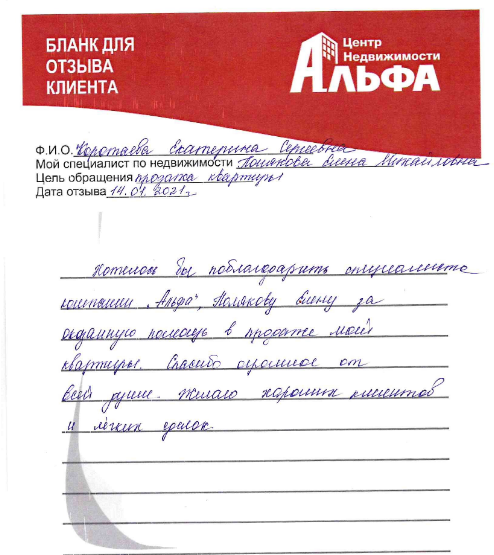 БЛАНК ДЛЯ
ОТЗЫВА
КЛИЕНТА
Центр
Недвижимости
АЛЬФА
Ф.И.О. Коротаева Екатерина Сергеевна
Мой специалист по недвижимости Полякова Елена Михайловна
Цель обращения продажа квартиры
Дата отзыва 14.01.2021г.
Хотелось бы поблагодарить специалиста
компании „Альфа", Полякову Елену за
оказанную помощь в продаже моей
квартиры. Спасибо огромное от
всей души. Желаю хороших клиентов
и лёгких сделок.